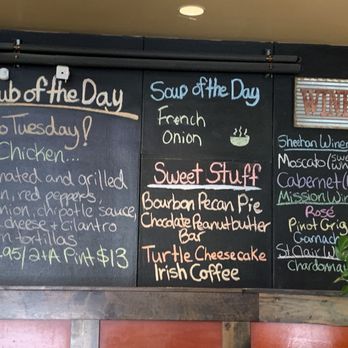 ub of the Day
o Tuesday!
Chicken...
nated and grilled
n, red peppers,
nion, chipotle sauce,
cheese + cilantro
n tortillas
.95/2+A Pint $13
Soup of the Day
French
Onion
Sweet Stuff
Bourbon Pecan Pie
Chocolate Peanutbutter
Bar
Turtle Cheesecake
Irish Coffee
WINE
Sheehan Winer
Moscato (swe
Cabernet (
Mission Win
Rosé
Pinot Grig
Garnach
St Clair Wi
Chardonna